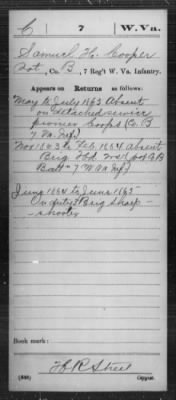 C 7 W. Va.
Samuel H. Cooper
Pvt., Co. B, 7 Reg't W. Va. Infantry.
Appears on Returns as follows:
May to July 1863 Absent
on detached service
pioneer Corps (Co. B
7. Va. Inf.)
Nov 1863 to Feb. 1864 absent
Brig Hd
Batt 7 W Va Inf)
June 1864 to June 1865
On duty Brig Sharp-
shooter
Book mark:
(546) Copyist.